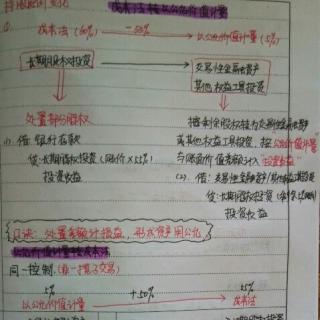 成本法转以公允价值计量
① 成本法 (60%) -55% 以公允价值计量 (5%)
长期股权投资
交易性金融资产
其他权益工具投资
处置部分股权
(1) 借: 银行存款
贷: 长期股权投资 (账价×55%)
投资收益
把剩余股权转为交易性金融资产
或其他权益工具投资, 按公允价值计量
与账面价值差额计入"投资收益"
(2). 借: 交易性金融资产/其他权益工具投资
贷: 长期股权投资
投资收益
口诀: 处置差额计损益, 形成资产用公允
以公允价值计量转成本法
同一控制. (非一揽子交易)
5% +50% 55%
以公允价值计量 成本法